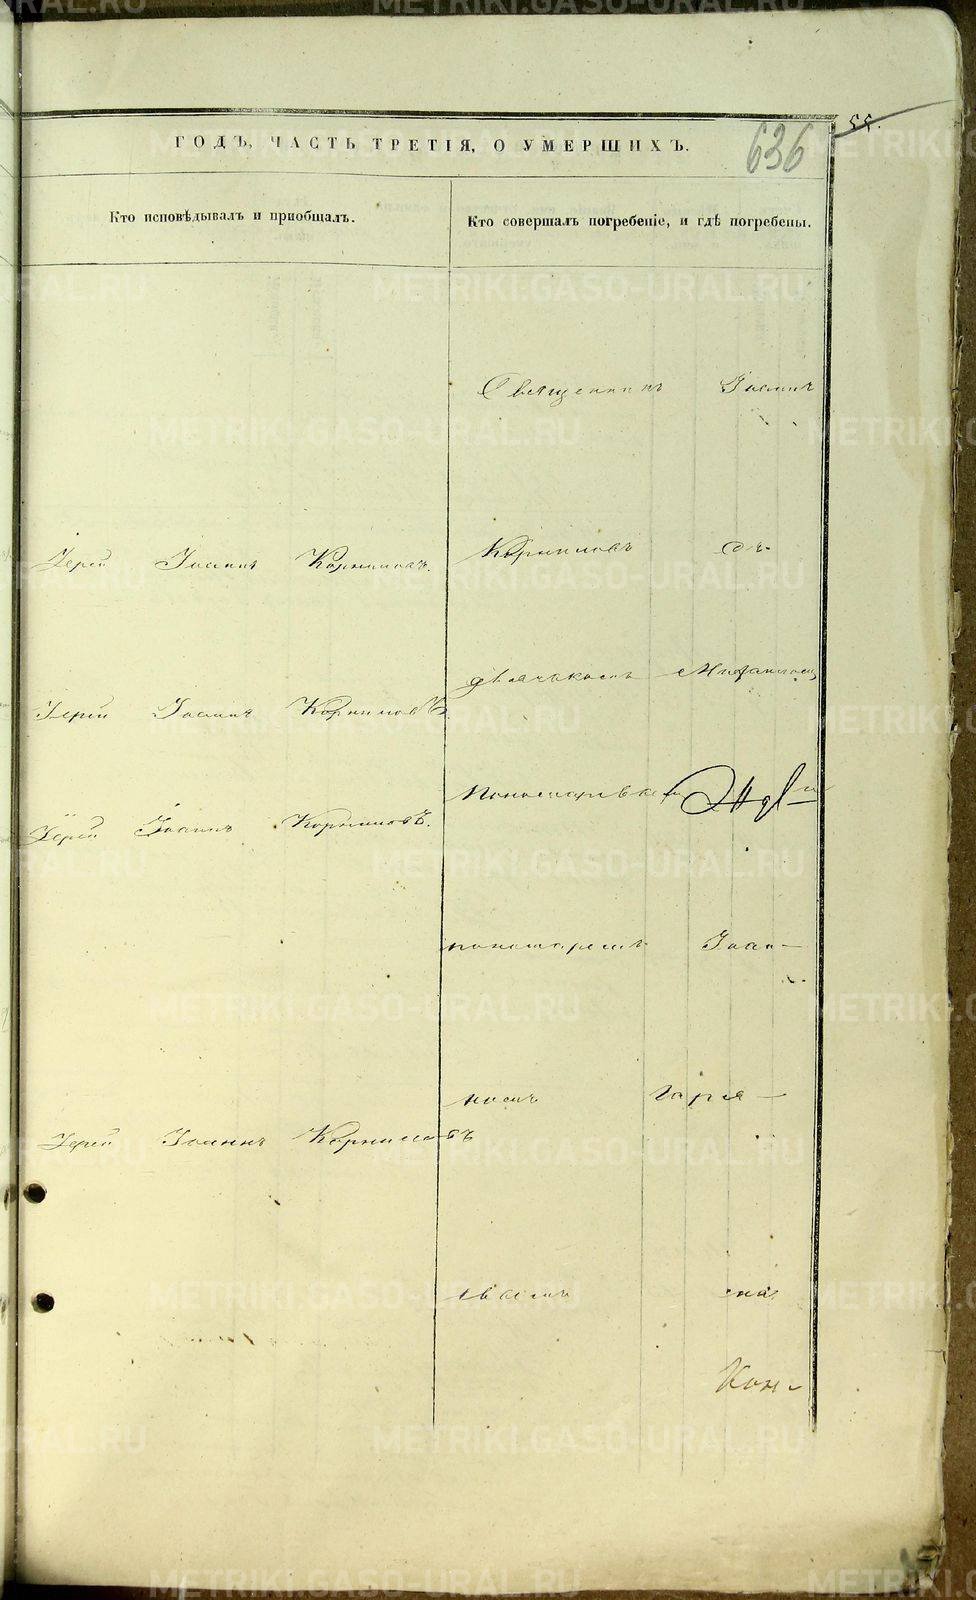 55.
636
ГОДЪ, ЧАСТЬ ТРЕТІЯ, О УМЕРШИХЪ.
Кто исповѣдывалъ и приобщалъ.
Кто совершалъ погребеніе, и гдѣ погребены.
Священникъ Іоаннъ
Іерей Іоаннъ Корниловъ.
Корниловъ съ
дьячькомъ
Іерей Іоаннъ Корниловъ.
Іерей Іоаннъ Корниловъ.
пономаремъ Іоан-
номъ Гаря-
Іерей Іоаннъ Корниловъ
евымъ на
Кон-
METRIKI.GASO-URAL.RU